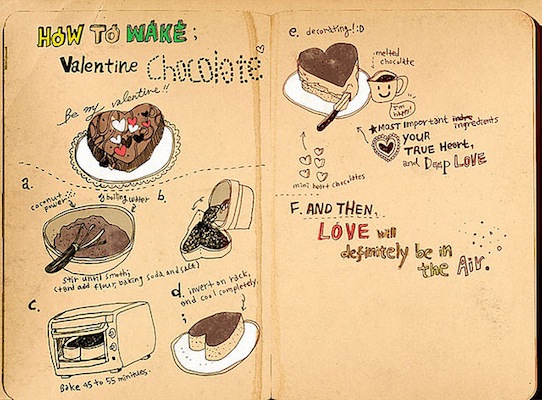 HOW TO WAKE;
Valentine Chocolate
Be my valentine!!
a.
coconut power
boiling water
b.
stir until smoth;
(+ and add flour, baking soda, and salt)
c.
Bake 45 to 55 mintues.
d. invert on rack,
and cool completely.
e. decorating! :D
melted
chocolate
I'm
happy!
mini heart chocolates
★ Most important ingredients
YOUR
TRUE Heart,
and Deep LOVE
F. AND THEN,
LOVE will
definitely be in
the Air.